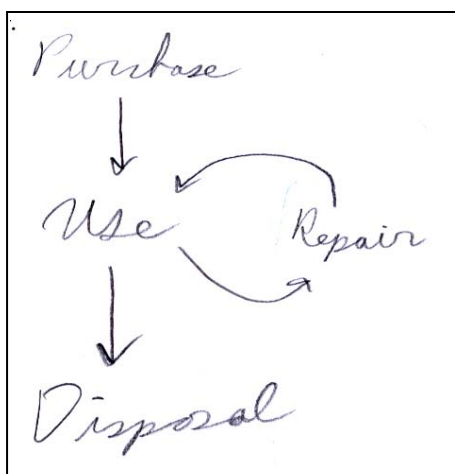 Purchase
Use
Repair
Disposal